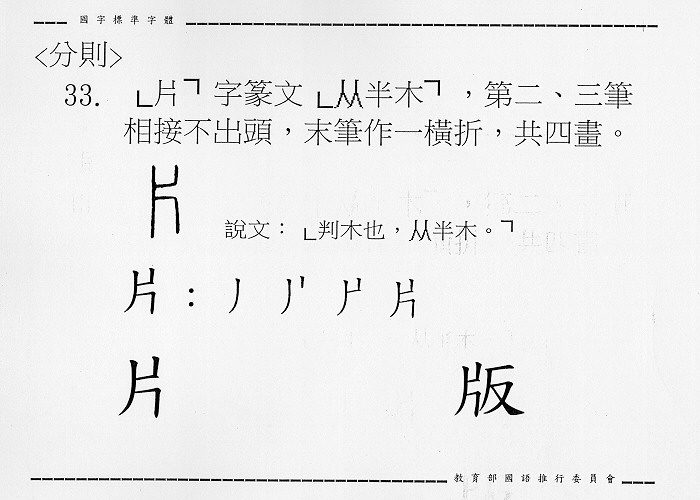 國字標準字體
<分則>
33. ﹂片﹁字篆文﹂从半木﹁，第二、三筆
相接不出頭，末筆作一橫折，共四畫。
說文：﹂判木也，从半木。﹁
片：丿
片
片 版
教育部國語推行委員會